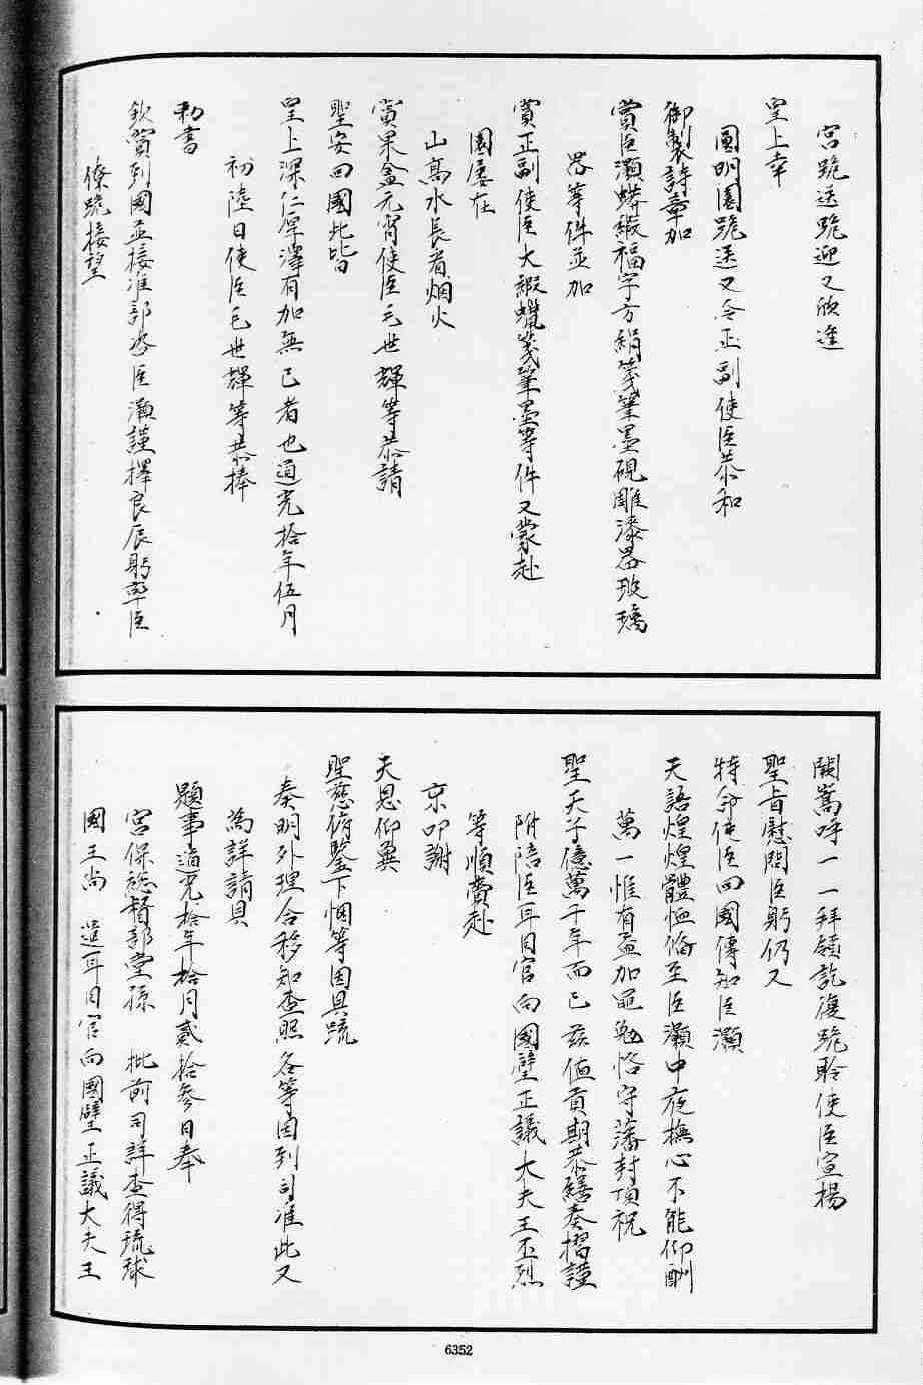 宮跪送跪迎又欣逢
皇上幸
圓明園跪送又令正副使臣恭和
御製詩章加
賞臣灝蟒緞福字方絹箋筆墨硯雕漆器玻璃
器等件並加
賞正副使臣大緞蠟箋筆墨等件又蒙赴
園屢在
山高水長看烟火
賞果盒元宵使臣毛世輝等恭請
聖安回國此皆
皇上深仁厚澤有加無已者也道光拾年伍月
初陸日使臣毛世輝等恭捧
勅書
欽賞到國並接准部咨臣灝謹擇良辰躬率臣
僚跪接望
闕嵩呼一一拜領訖復跪聆使臣宣揚
聖旨慰問臣躬仍又
特命使臣回國傳知臣灝
天語煌煌體恤備至臣灝中夜撫心不能仰酬
萬一惟有益加黽勉恪守藩封頂祝
聖天子億萬千年而已茲值貢期恭繕奏摺謹
附陪臣耳目官向國璧正議大夫王丕烈
等順賫赴
京叩謝
天恩仰冀
聖慈俯鑒下悃等因具疏
奏明外理合移知查照各等因到司准此又
為詳請具
題事道光拾年拾月貳拾叁日奉
宮保總督部堂孫 批前司詳查得琉球
國王尚 遣耳目官向國璧正議大夫王
6352